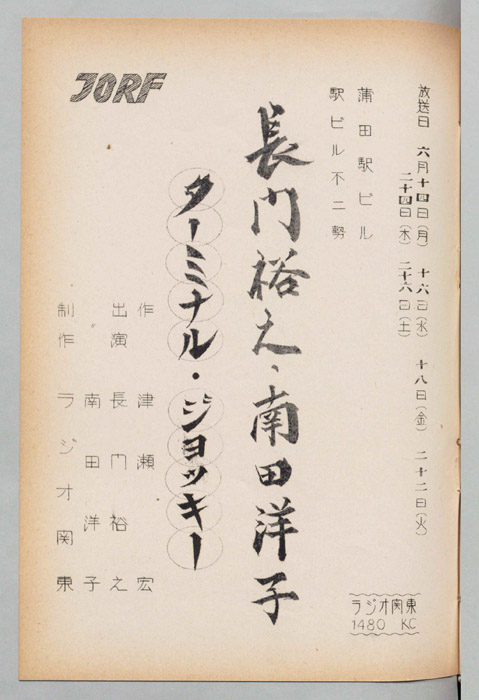 放送日 六月十四日(月) 十六日(水) 十八日(金) 二十二日(火)
二十四日(木) 二十六日(土)
蒲田駅ビル
駅ビル不二勢
長門裕之、南田洋子
ターミナル・ジョッキー
JORF
作 津瀬宏
出演 長門裕之
南田洋子
制作 ラジオ関東
ラジオ関東
1480 KC